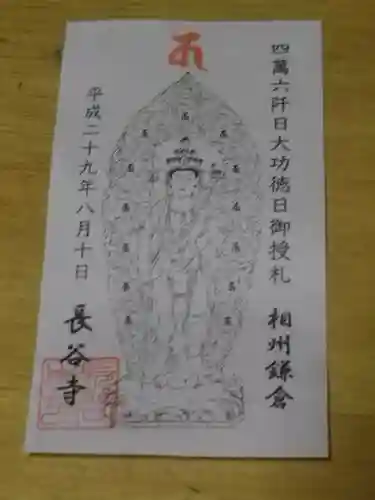 四萬六阡日大功徳日御授札
相州鎌倉
平成二十九年八月十日
長谷寺